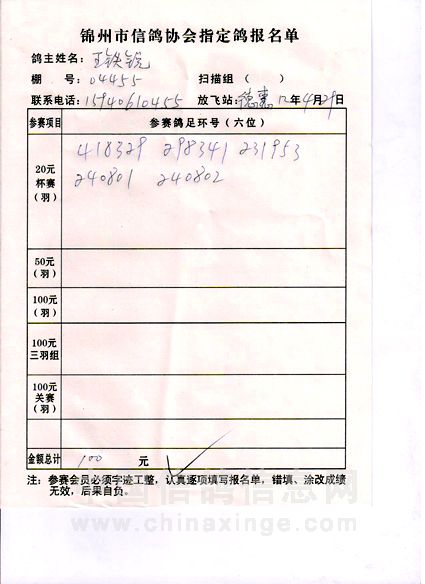 锦州市信鸽协会指定鸽报名单
鸽主姓名： 王铁锐
棚 号：04455 扫描组（ ）
联系电话：15940610455 放飞站：德惠 12年4月29日
参赛项目 参赛鸽足环号（六位）
20元
杯赛
（羽）
418329 298341 231953
240801 240802
50元
（羽）
100元
（羽）
100元
三羽组
100元
关赛
（羽）
金额总计 100 元
注：参赛会员必须字迹工整，认真逐项填写报名单，错填、涂改成绩
无效，后果自负。
中国信鸽信息网
www.chinaxinge.com